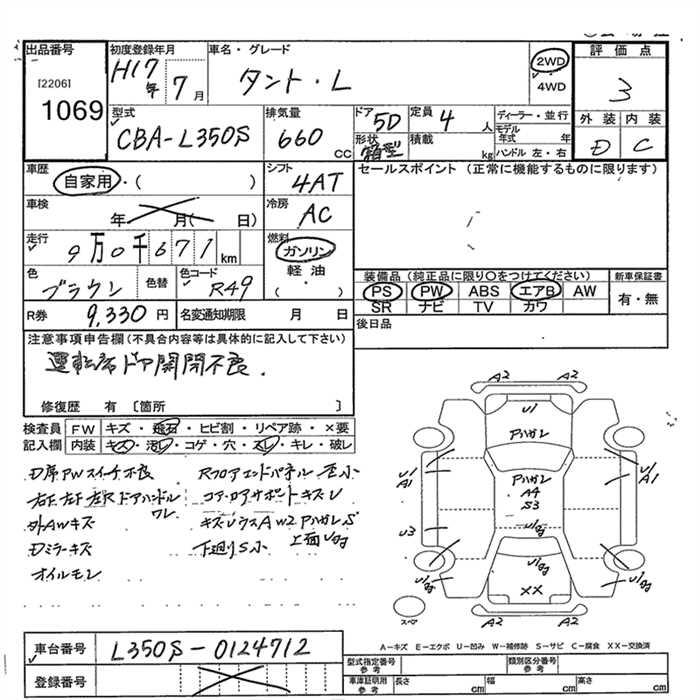 出品番号
[2206]
1069
初度登録年月
H17年 7月
車名・グレード
タント・L
2WD
4WD
評価点
3
外装 内装
D C
型式
CBA-L350S
排気量
660 CC
ドア
5D
形状
箱型
定員
4 人
積載
kg
ディーラー・並行
モデル年式 年
ハンドル 左・右
車歴
自家用・( )
シフト
4AT
セールスポイント (正常に機能するものに限ります)
車検
年 月( 日)
冷房
AC
走行
9万0千671km
燃料
ガソリン
軽油
( )
色
ブラウン
色替
色コード
R49
装備品(純正品に限り〇をつけてください)
PS PW ABS エアB AW
SR ナビ TV カワ
新車保証書
有・無
R券 9,330 円
名変通知期限 月 日
後日品
注意事項申告欄(不具合内容等は具体的に記入して下さい)
運転席ドア開閉不良.
修復歴 有 〔箇所 〕
検査員記入欄
FW キズ・飛石・ヒビ割・リペア跡・×要
内装 キズ・汚レ・コゲ・穴・スレ・キレ・破レ
D席PWスイッチ不良
右F左F左Rドアハンドルワレ
外AWキズ
Dミラーキズ
オイルモレ
RフロアエンドパネルS小
コア・ロアサポートキズU
キズUウスAW2PハガレS
下廻りS小
上面Ug
A2 A2
U1
Pハガレ
Pハガレ
A4
S3
U1
A1
U1
A1
U3
XX
A2 A2
スペア
A-キズ E-エクボ U-凹み W-補修跡 S-サビ C-腐食 XX-交換済
車台番号
L350S-0124712
登録番号
型式指定番号 参考
類別区分番号 参考
車庫証明用 参考
長さ cm
幅 cm
高さ cm